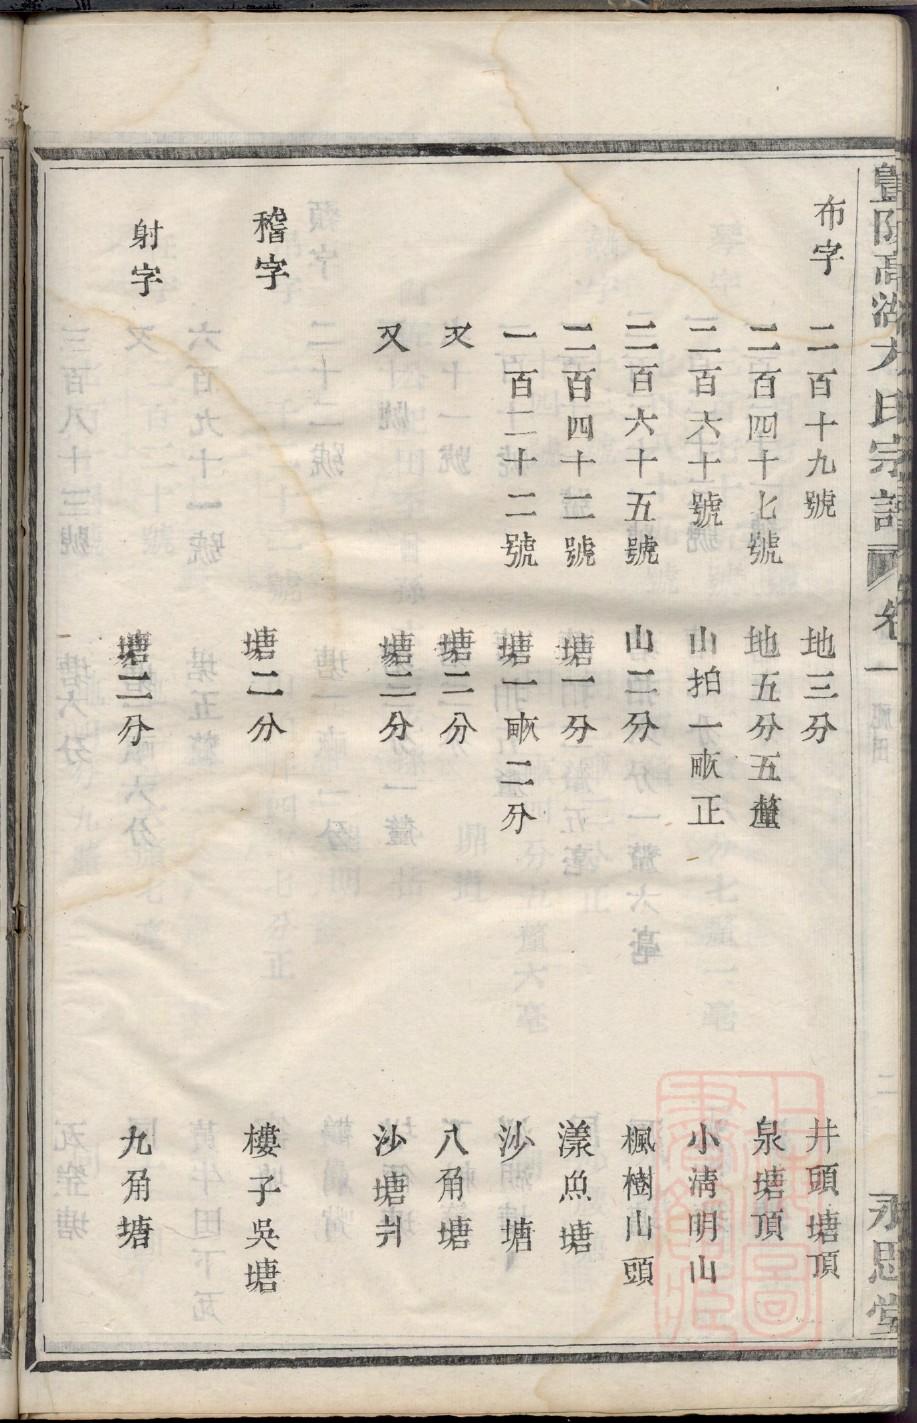 高湖方氏宗譜 卷一 二 永思堂
布字 二百十九號 地三分 井頭塘頂
二百四十七號 地五分五釐 泉塘頂
二百六十號 山拍一畝正 小清明山
二百六十五號 山二分 楓樹山頭
二百四十二號 塘一分 漾魚塘
一百二十二號 塘一畝二分 沙塘
又 塘二分 八角塘
又 塘二分 沙塘爿
稽字 塘二分 樓子吳塘
射字 塘二分 九角塘